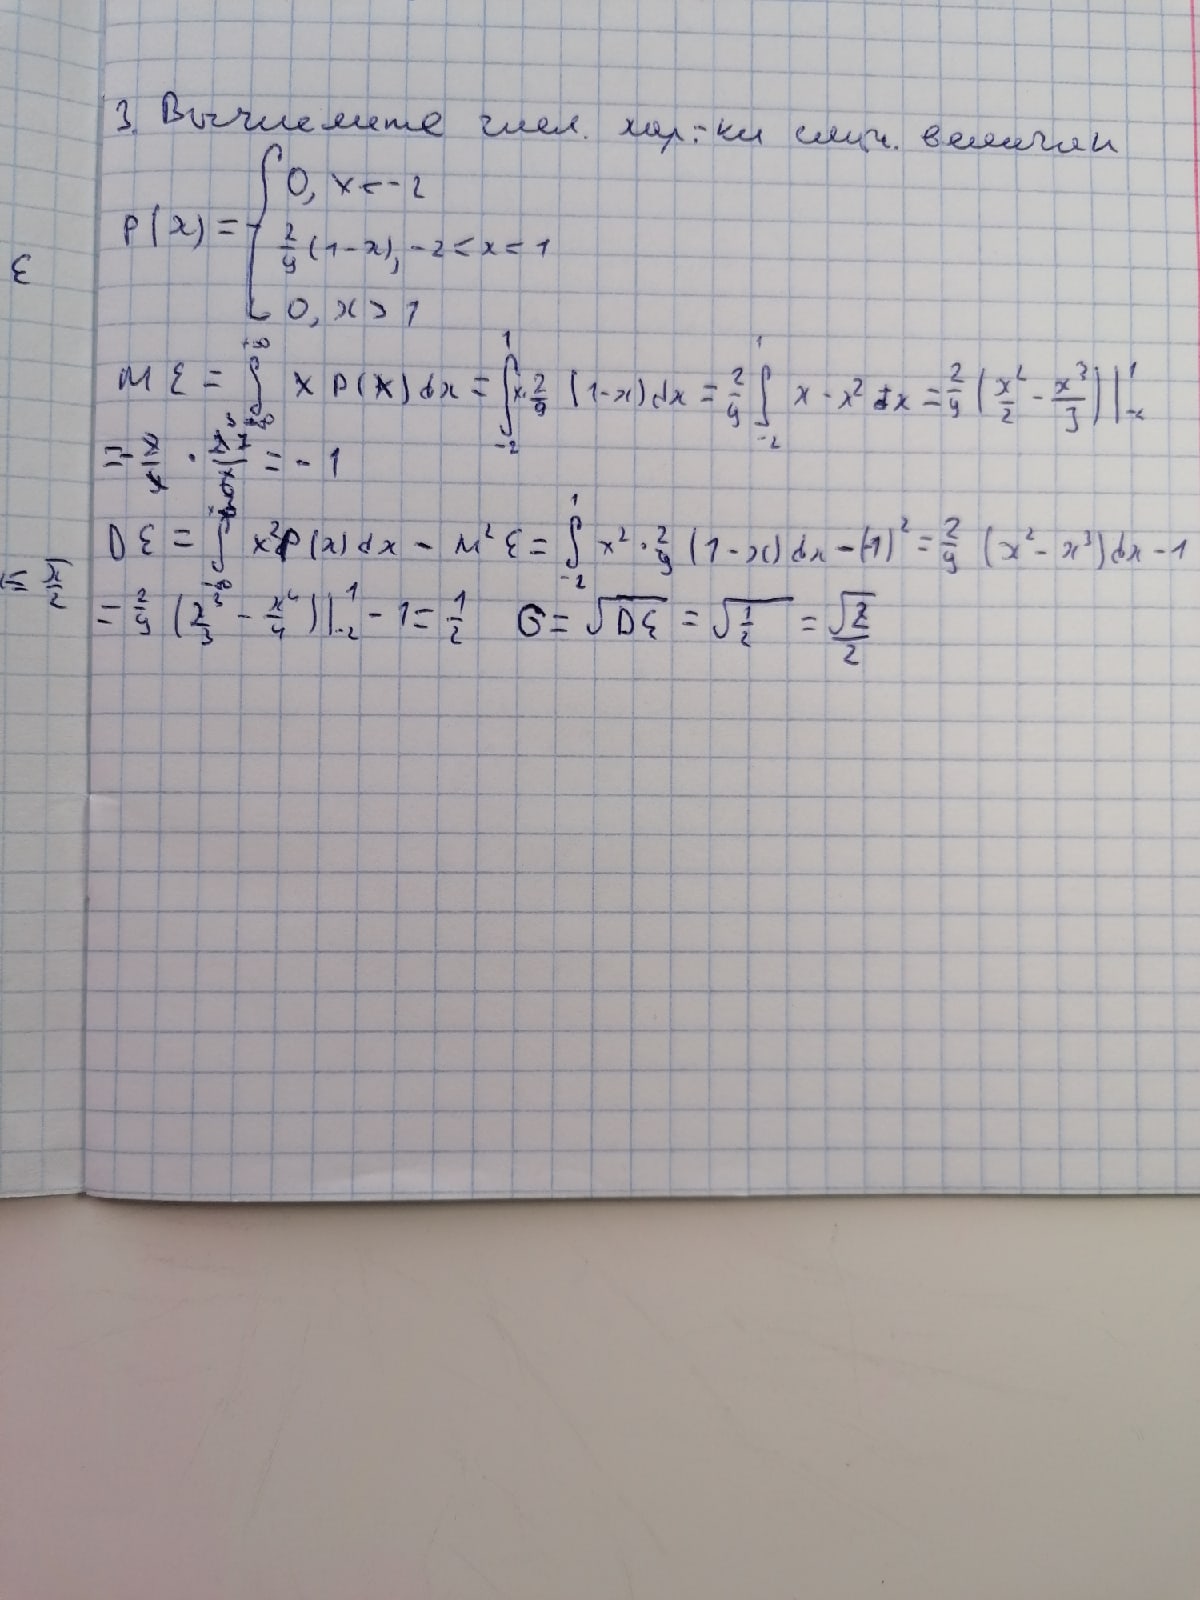 3. Вычислите числ. хар-ки случ. величин
P(x) = { 0, x < -2
2/9 (1-x), -2 ≤ x ≤ 1
0, x > 1
ε
M ε = ∫_{-∞}^{+∞} x P(x) dx = ∫_{-2}^{1} x·2/9 (1-x) dx = 2/9 ∫_{-2}^{1} x - x² dx = 2/9 (x²/2 - x³/3) |_{-2}^{1}
= -1
D ε = ∫_{-∞}^{+∞} x² P(x) dx - M² ε = ∫_{-2}^{1} x² · 2/9 (1-x) dx - (-1)² = 2/9 (x² - x³) dx - 1
= 2/9 (x³/3 - x⁴/4) |_{-2}^{1} - 1 = 1/2 σ = √Dε = √1/2 = √2/2